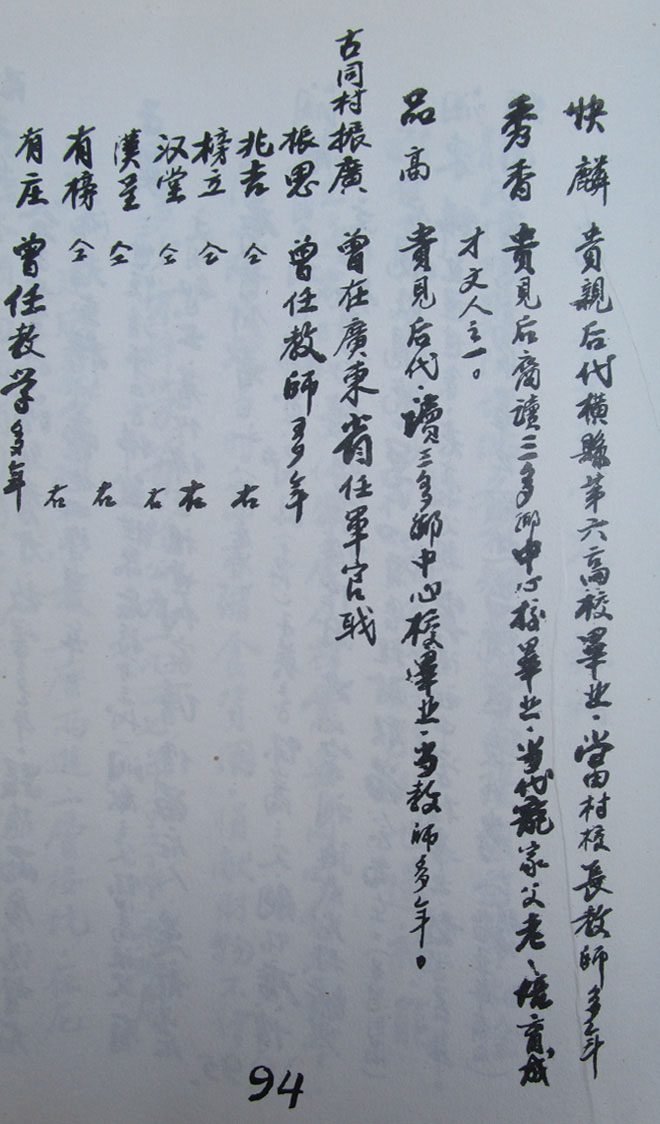 快麟 貴親后代橫縣第六高校畢业，当田村校長教師多年
秀香 貴見后裔讀三多鄉中心校畢业，当代龐家父老，培育成
才文人之一。
品高 貴見后代，讀三多鄉中心校畢业，当教師多年。
古同村振廣 曾在廣東省任軍官戝
振思 曾任教師多年
兆吉 仝 右
榜立 仝 右
汉棠 仝 右
漢呈 仝 右
有榜 仝 右
有庄 曾任教学多年
94